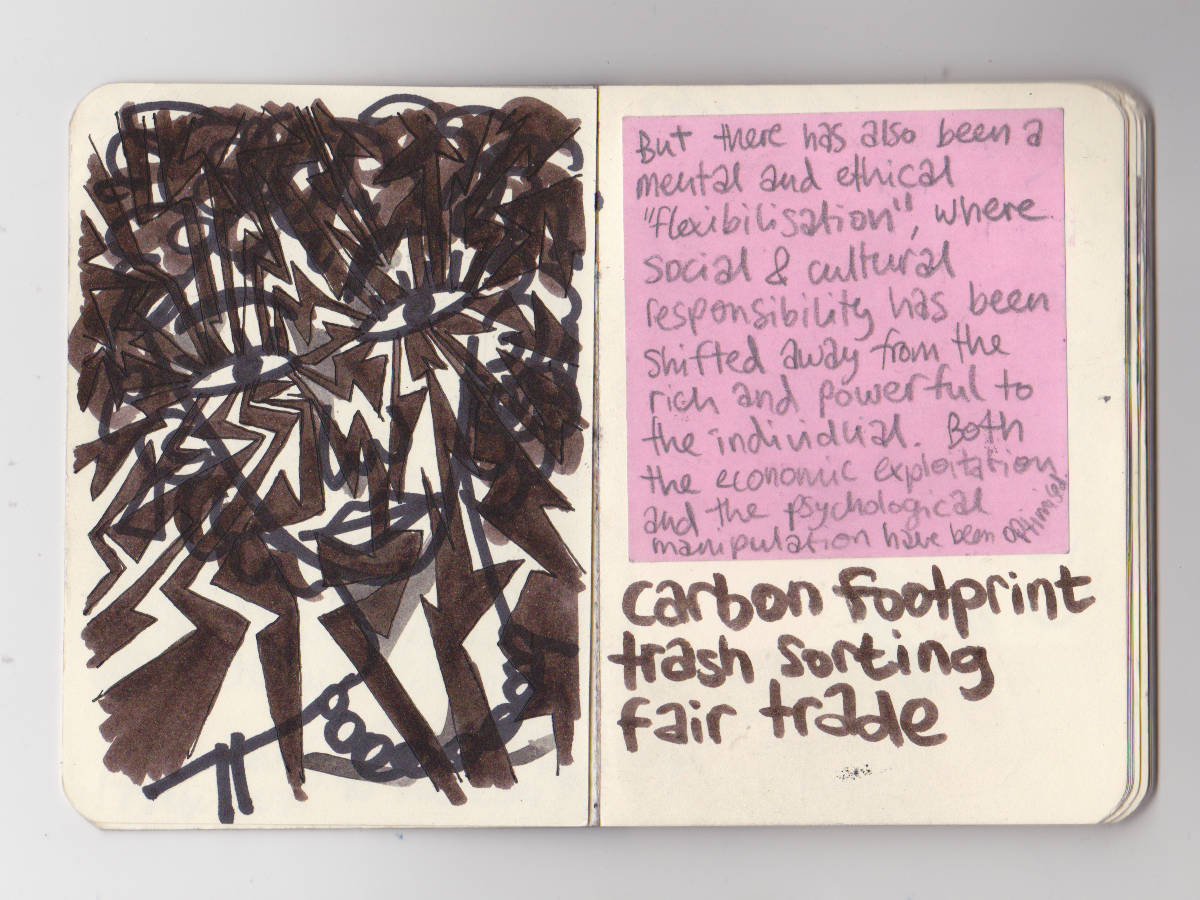 But there has also been a
mental and ethical
"flexibilisation", where
social & cultural
responsibility has been
shifted away from the
rich and powerful to
the individual. Both
the economic exploitation
and the psychological
manipulation have been optimised.
carbon footprint
trash sorting
fair trade